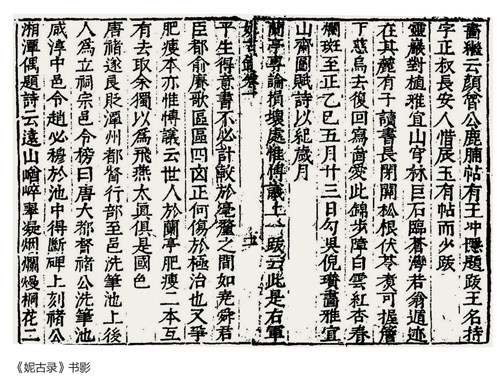 畵繼云顏魯公鹿脯帖有王冲隱題跋王名持
字正叔長安人惜辰玉有帖而少跋
靈巖對植雅宜山穹林巨石臨蒼灣若翁遁迹
在其麓有子讀書長閉關松根伏苓煑可握簷
下慈烏去復回寫啚愛此錦步障白雲紅杏春
斕斑至正乙巳五月廿三日勾吳倪瓚畵雅宜
山齋圖賦詩以紀歲月
蘭亭專論損壞處惟博議上一跋云此是右軍
妮古錄卷
平生得意書不必計較於毫釐之間如堯舜君
臣都俞賡歌區區四凶正何傷於極治也又筆
肥瘦本亦惟博議云世人於蘭亭肥瘦二本互
有去取余獨以爲飛燕太真俱是國色
唐褚遂良貶潭州都督行部至邑洗筆池上後
人爲立祠宗邑令榜曰唐大都督褚公洗筆池
咸淳中邑令趙必穆於池中得斷碑上刻褚公
湘潭偶題詩云遠山崷崒翠凝烟爛熳桐花二
《妮古录》书影